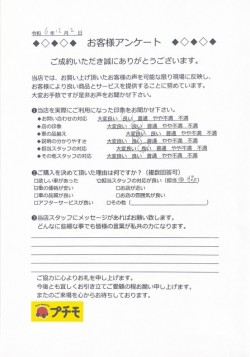 令和 年 月 日
◆◇◆◇◆ お客様アンケート ◆◇◆◇◆
ご成約いただき誠にありがとうございます。
当店では、お買い上げ頂いたお客様の声を可能な限り現場に反映し、
お客様により良い商品とサービスを提供することに努めています。
大変お手数ですが是非お声をお聞かせ下さい。
❶当店を実際にご利用になった印象をお聞かせ下さい。
●お問い合わせの対応 大変良い 良い 普通 やや不満 不満
●店の印象 大変良い 良い 普通 やや不満 不満
●車の品揃え 大変良い 良い 普通 やや不満 不満
●説明の分かりやすさ 大変良い 良い 普通 やや不満 不満
●担当スタッフの対応 大変良い 良い 普通 やや不満 不満
●その他スタッフの対応 大変良い 良い 普通 やや不満 不満
❷ご購入を決めて頂いた理由は何ですか？（複数回答可）
□欲しい車があった □担当スタッフの対応が良い（担当
□車の価格が安い □お店が近い
□車の品質が良い □お店の雰囲気が良い
□アフターサービスが良い □その他（ ）
❸当店スタッフにメッセージがあればお願い致します。
どんなに些細な事でも皆様の言葉が私共の力になります。
ご協力に心よりお礼を申し上げます。
今後とも宜しくお引き立てご愛顧の程お願い申し上げます。
またのご来場を心からお待ちしております。
プチモ